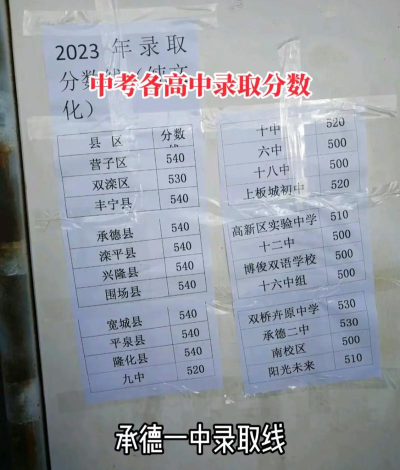 2023 年录取
分数线（纯文
化）
中考各高中录取分数
县 区 分数
营子区 540
双滦区 530
丰宁县 540
承德县 540
滦平县 540
兴隆县 540
围场县 540
宽城县 540
平泉县 540
隆化县 540
九中 520
十中 520
六中 500
十八中 500
上板城初中 520
高新区实验中学 510
十二中 500
博俊双语学校 500
十六中组 500
双桥卉原中学 530
承德二中 530
南校区 500
阳光未来 510
承德一中录取线